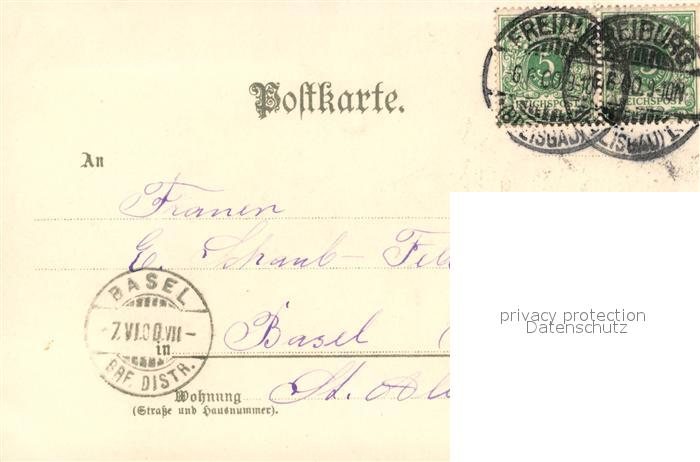 FREIBURG FREIBURG
5 5
6.6.00.9-10N. 6.6.00.9-10N.
REICHSPOST REICHSPOST
(BREISGAU) 1. (BREISGAU) 1.
Postkarte.
An
Frauen
E. Schaub-
privacy protection
Datenschutz
BASEL
-7.VI.00.VII-
BRF. DISTR.
in
Basel
St.
Wohnung
(Straße und Hausnummer).